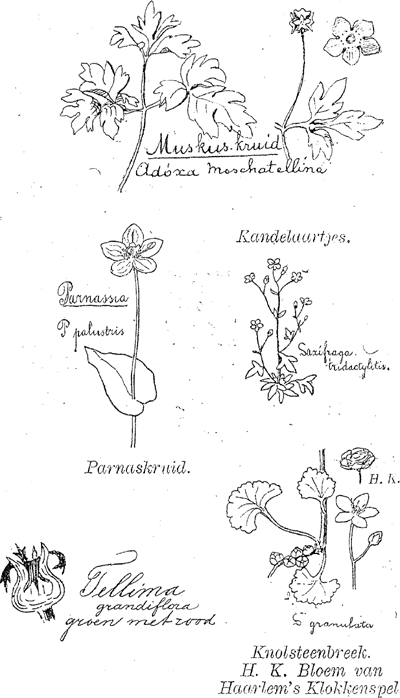 Muskus-kruid
Adóxa Moschatellina
Kandelaartjes.
Parnassia
P palustris
Saxifraga
tridactylitis.
Parnaskruid.
H. K.
Tellima
grandiflora
groen met rood
S granulata
Knolsteenbreek.
H. K. Bloem van
Haarlem's Klokkenspel